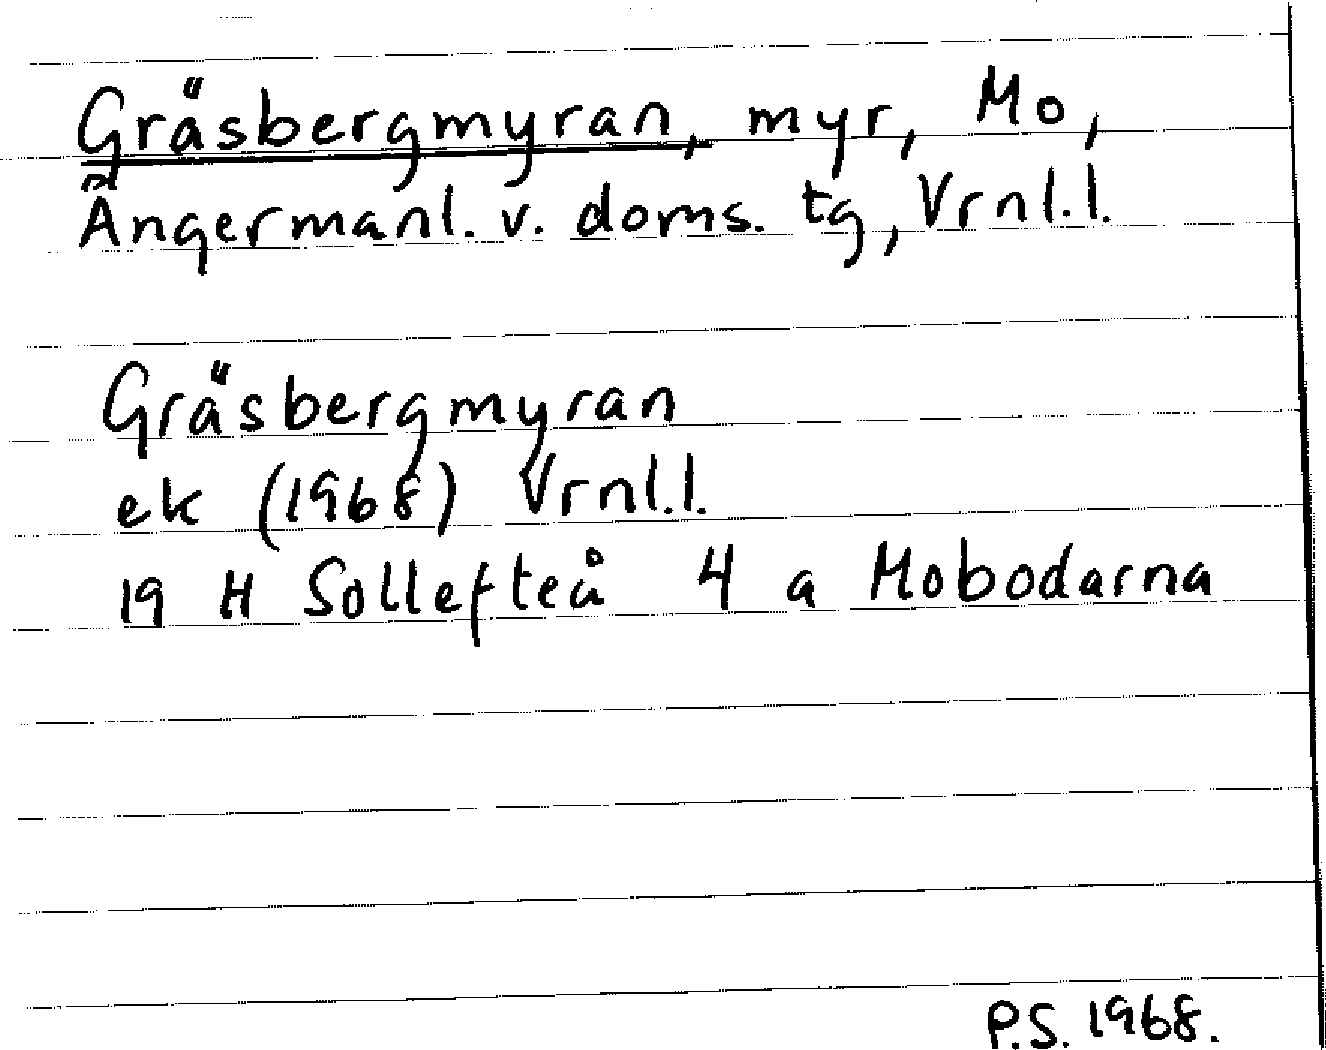 Gräsbergmyran, myr, Mo,
Ångermanl. v. doms. tg, Vrnl.l.
Gräsbergmyran
ek (1968) Vrnl.l.
19 H Sollefteå 4 a Mobodarna
P.S. 1968.